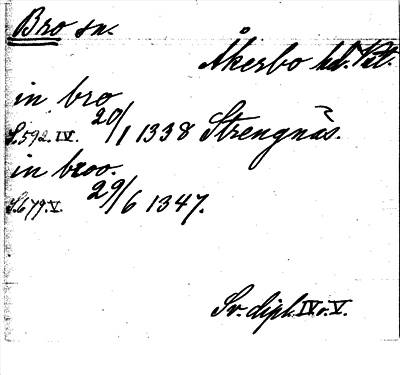 Bro sn.
Åkerbo hd. Vst.
in bro
S. 592. IV. 20/1 1338 Strengnäs.
in broo.
S. 679. V. 29/6 1347.
Sv. dipl. IV o. V.